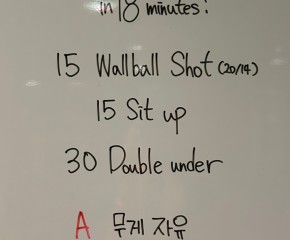 in 18 minutes:
15 Wallball Shot (20/14)
15 Sit up
30 Double under
A 무게 자유